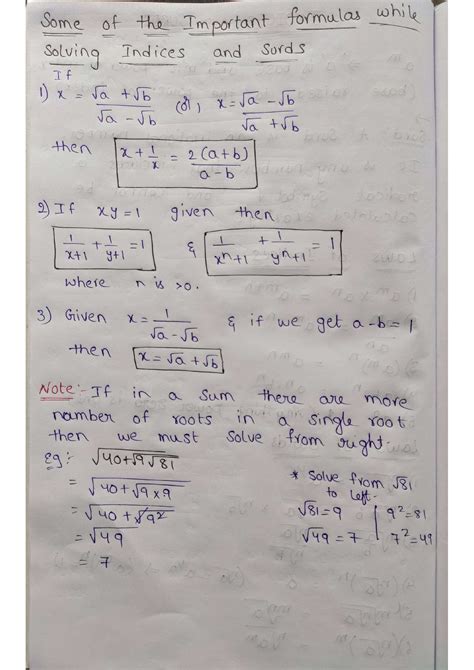 Some of the Important formulas while
Solving Indices and Sords
If
1) x = √a + √b / √a - √b (or), x = √a - √b / √a + √b
then x + 1/x = 2(a+b) / a-b
2) If xy=1 given then
1/x+1 + 1/y+1 = 1 & 1/xⁿ+1 + 1/yⁿ+1 = 1
where n is >0.
3) Given x = 1 / √a - √b & if we get a-b = 1
then x = √a + √b
Note:- If in a sum there are more
number of roots in a single root
then we must solve from right.
Eg:- √40+√9√81
= √40+√9×9
= √40+√9²
= √49
= 7
* Solve from √81
to left.
√81=9 | 9²=81
√49=7 | 7²=49